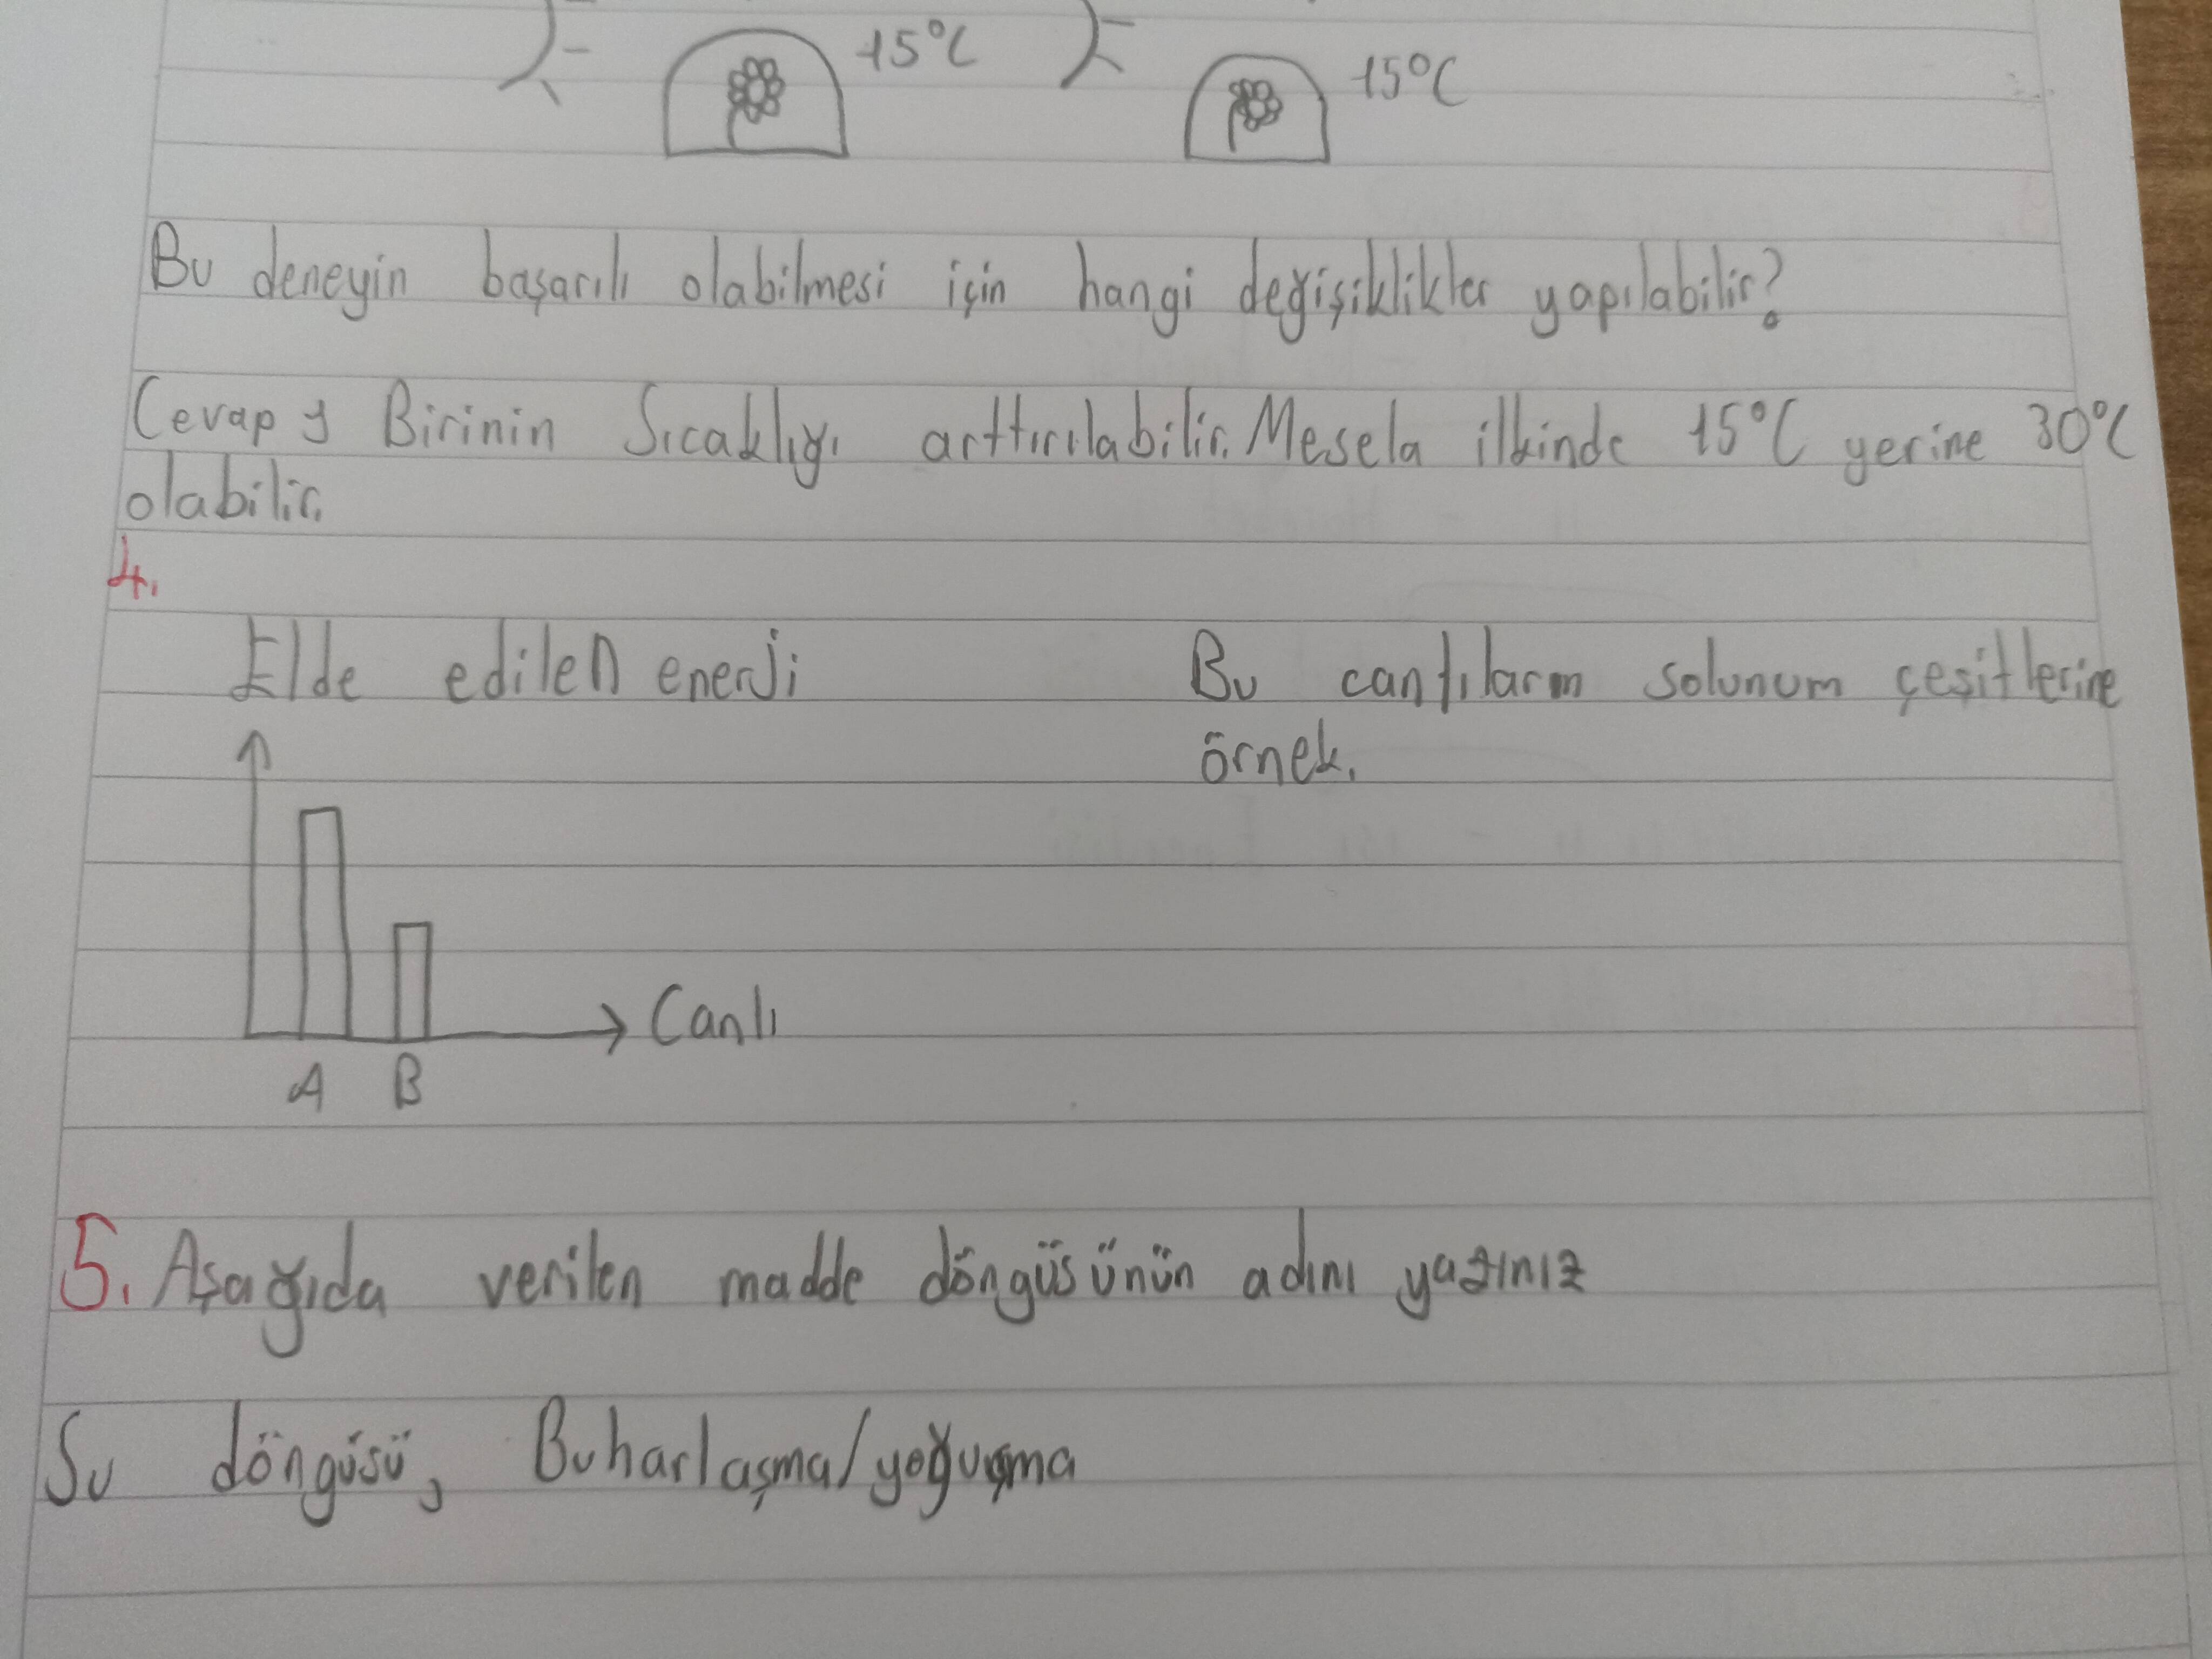 15°C 15°C
Bu deneyin başarılı olabilmesi için hangi değişiklikler yapılabilir?
Cevap y Birinin Sıcaklığı arttırılabilir. Mesela ilkinde 15°C yerine 30°C
olabilir.
4.
Elde edilen enerji
Bu canlıların solunum çeşitlerine
örnek.
Canlı
A B
5. Aşağıda verilen madde döngüsünün adını yazınız
Su döngüsü, Buharlaşma/yoğuşma